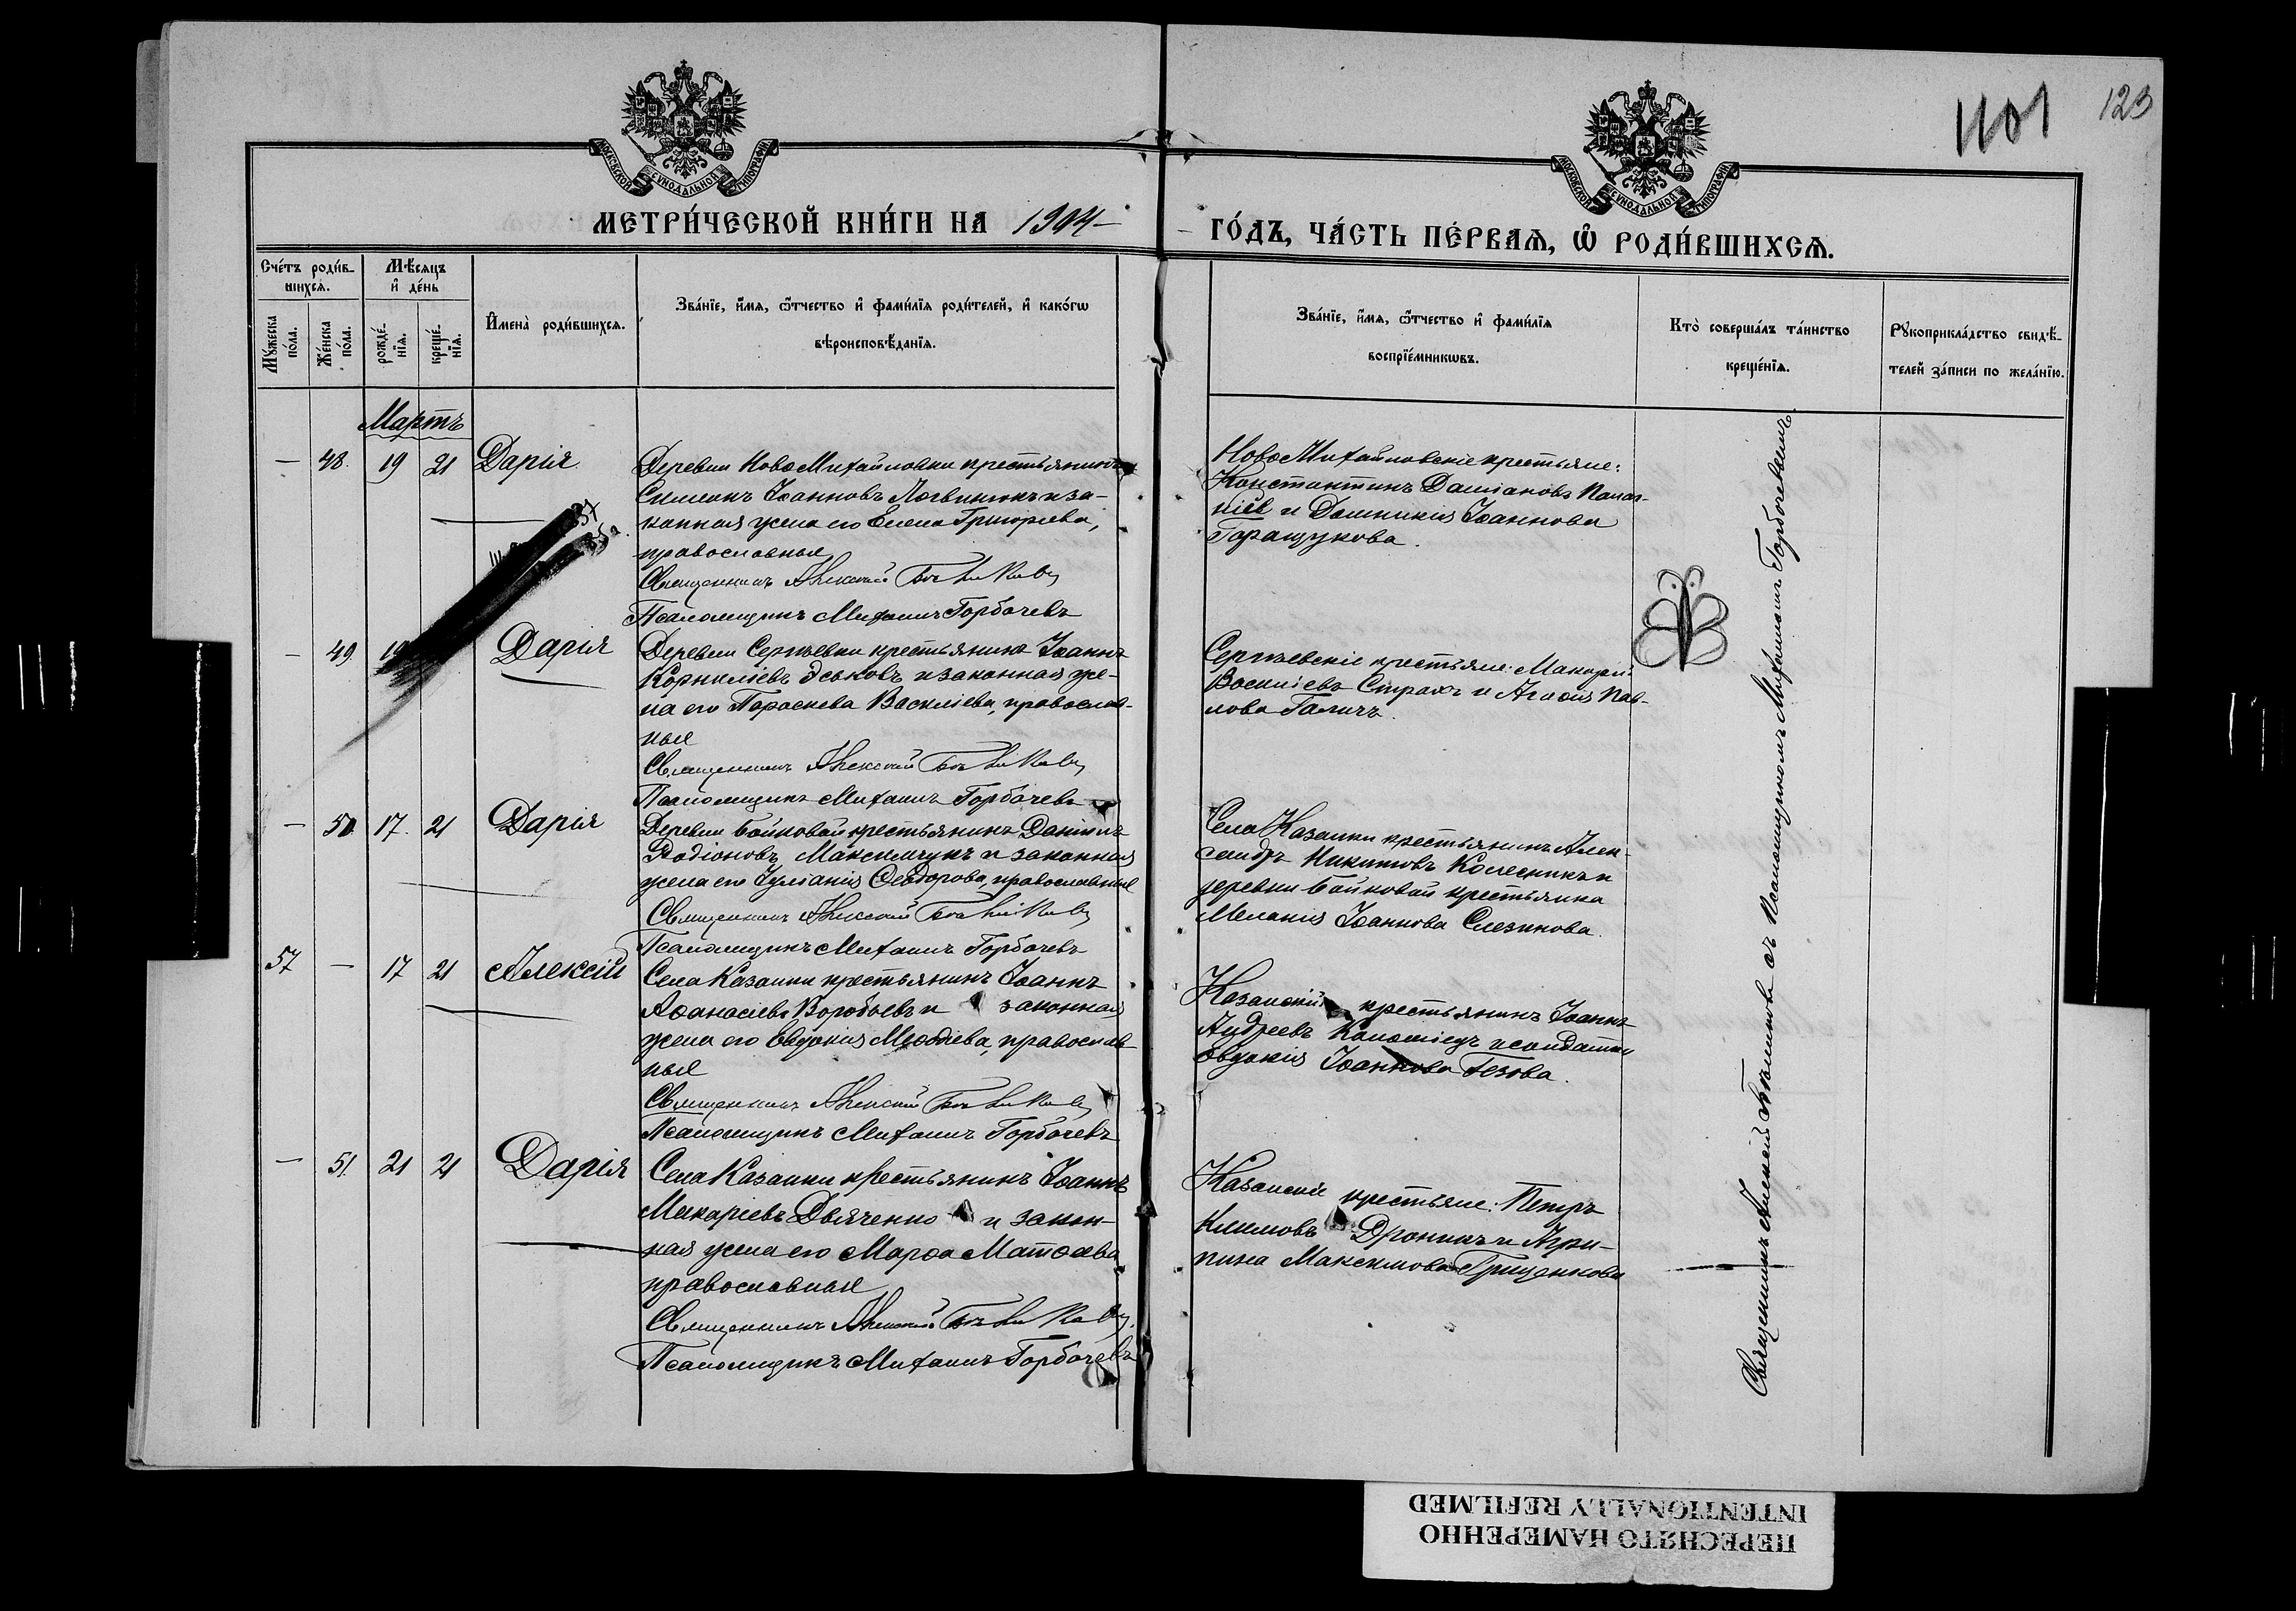 1101
123
МОСКОВСКОЙ СѴНОДАЛЬНОЙ ТИПОГРАФІИ
МОСКОВСКОЙ СѴНОДАЛЬНОЙ ТИПОГРАФІИ
МЕТРИ́ЧЕСКОЙ КНИ́ГИ НА 1904
ГО́ДЪ, ЧА́СТЬ ПЕ́РВАЯ, Ѽ РОДИ́ВШИХСѦ.
Сче́тъ роди́в-
шихся.
Мꙋ́жеска по́ла.
Же́нска по́ла.
Мѣ́сяцъ
и҆ де́нь
рожде́-
нїя.
креще́-
нїя.
И҆мена̀ роди́вшихся.
Зва́нїе, и҆́мя, ѻ҆́тчество и҆ фами́лїя роди́телей, и҆ како́гѡ
вѣроисповѣ́данїя.
Зва́нїе, и҆́мя, ѻ҆́тчество и҆ фами́лїя
воспрїе́мникѡвъ.
Кто̀ соверша́лъ та́инство
креще́нїя.
Рꙋкоприкла́дство свидѣ́-
телей за́писи по жела́нїю.
Мартъ
— 48. 19 21 Дарія
Деревни НовоМихайловки крестьянинъ
Симеонъ Іоанновъ Логвинюкъ и за-
конная жена его Елена Григоріева,
православные
Священникъ Алексій
Псаломщикъ Михаилъ Горбачевъ
НовоМихайловскіе крестьяне:
Константинъ Даміановъ
и Домникія Іоаннова
Горащукова.
— 49. 19 Дарія
Деревни Сергѣевки крестьянинъ Іоаннъ
Корниліевъ Зѣьковъ и законная же-
на его Параскева Василіева, православ-
ные
Священникъ Алексій
Псаломщикъ Михаилъ Горбачевъ
Сергѣевскіе крестьяне: Макарій
Василіевъ Страхъ и Агафія Пав-
лова Галичъ.
— 50. 17. 21 Дарія
Деревни Байковой крестьянинъ Даніилъ
Родіоновъ Максимчукъ и законная
жена его Іуліанія Ѳеодорова, православные
Священникъ Алексій
Псаломщикъ Михаилъ Горбачевъ
Села Казанки крестьянинъ Алек-
сандръ Никитовъ Колесникъ и
деревни Байковой крестьянка
Меланія Іоаннова Слезикова.
57 — 17 21 Алексій
Села Казанки крестьянинъ Іоаннъ
Аѳанасіевъ Воробьевъ и законная
жена его Евдокія Меѳодіева, православ
ные
Священникъ Алексій
Псаломщикъ Михаилъ Горбачевъ
Казанскій крестьянинъ Іоаннъ
Андреевъ Коломіецъ и солдатка
Евдокія Іоаннова Гезова.
— 51. 21 21 Дарія
Села Казанки крестьянинъ Іоаннъ
Макаріевъ Дьяченко и закон-
ная жена его Марѳа Матѳеева
православные
Священникъ Алексій
Псаломщикъ Михаилъ Горбачевъ
Казанскіе крестьяне: Петръ
Климовъ Дронникъ и Агри-
пина Максимова Гриценкова
Священникъ Алексій съ псаломщикомъ Михаиломъ Горбачевымъ.
ПЕРЕСНЯТО НАМЕРЕННО
INTENTIONALLY REFILMED